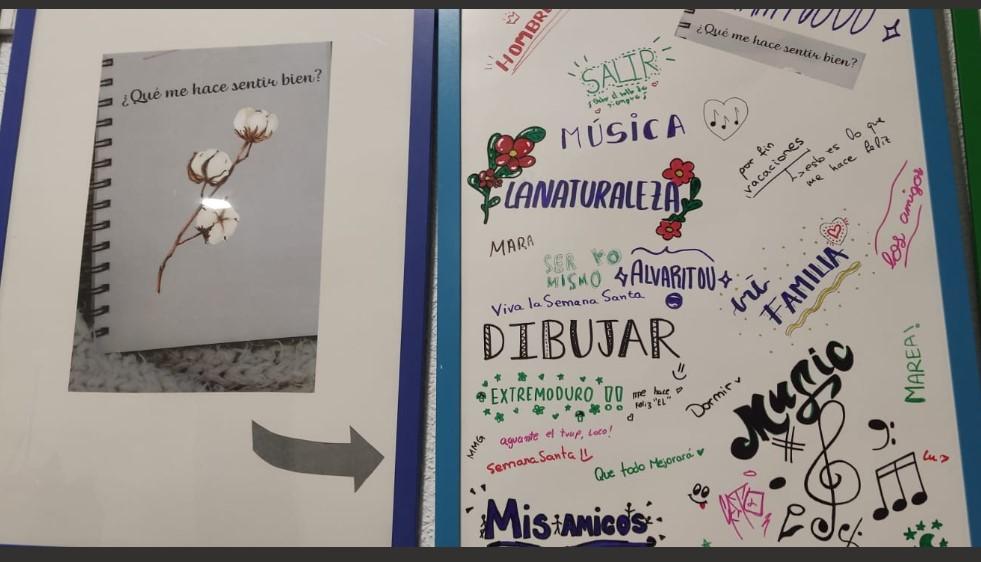 ¿Qué me hace sentir bien?
HOMBRE
¿Qué me hace sentir bien?
SALIR
MÚSICA
por fin
vacaciones
esto es lo que
me hace feliz
LA NATURALEZA
los amigos
MARA
SER YO
MISMO
ALVARITOU
mi
FAMILIA
Viva la Semana Santa
DIBUJAR
MAREA!
EXTREMODURO !!
me hace
feliz "EL"
Dormir
Music
MMG
aguante el trap, loco!
Semana Santa !!
Que todo Mejorará
Mis AMIGOS